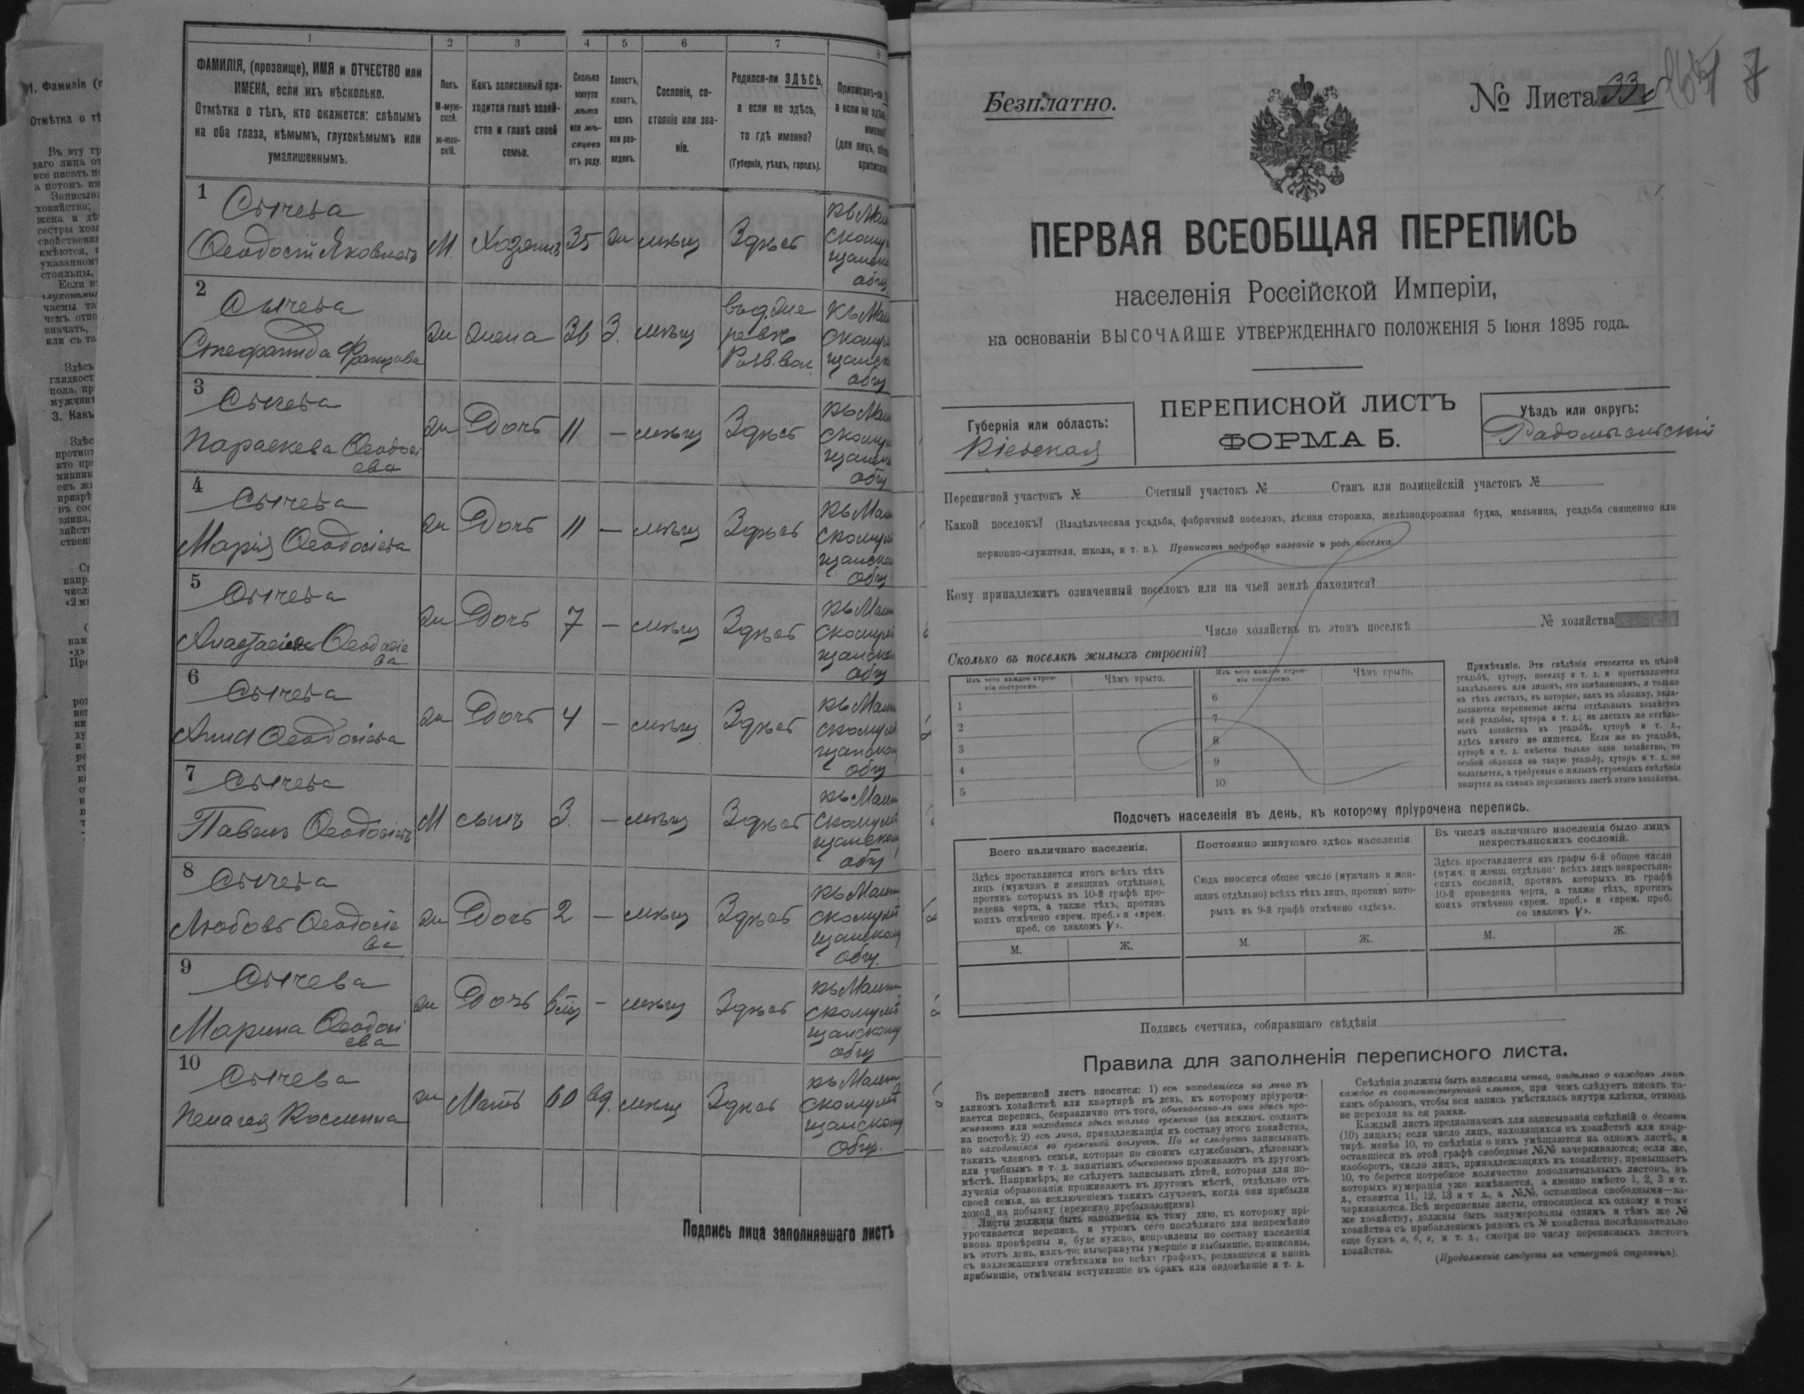 1
2
3
4
5
6
7
ФАМИЛІЯ, (прозвище), ИМЯ и ОТЧЕСТВО или
ИМЕНА, если ихъ нѣсколько.
Отмѣтка о тѣхъ, кто окажется: слѣпымъ
на оба глаза, нѣмымъ, глухонѣмымъ или
умалишеннымъ.
Полъ.
М-муж-
ской.
ж-жен-
скій.
Какъ записанный при-
ходится главѣ хозяй-
ства и главѣ своей
семьи.
Сколько
минуло
лѣтъ
или мѣ-
сяцевъ
отъ роду.
Холостъ,
женатъ,
вдовъ
или раз-
веденъ.
Сословіе, со-
стояніе или зва-
ніе.
Родился-ли ЗДѢСЬ,
а если не здѣсь,
то гдѣ именно?
(Губернія, уѣздъ, городъ).
1
Сычева
Ѳеодосій Яковлевъ М. Хозяинъ 35 жн мѣщ Здѣсь
2
Сычева
жн жена 36 З. мѣщ
3
Сычева
Параскева Ѳеодосі
ева
жн Дочь 11 — мѣщ Здѣсь
4
Сычева
Марія Ѳеодосіева жн Дочь 11 — мѣщ Здѣсь
5
Сычева
Анастасія Ѳеодосіе
ва
жн Дочь 7 — мѣщ Здѣсь
6
Сычева
Анна Ѳеодосіева жн Дочь 4 — мѣщ Здѣсь
7
Сычева
Павелъ Ѳеодосіевъ М сынъ 3. — мѣщ Здѣсь
8
Сычева
Любовь Ѳеодосіе
ва
жн Дочь 2 — мѣщ Здѣсь
9
Сычева
Марина Ѳеодосі
ева
жн Дочь — мѣщ Здѣсь
10
Сычева
Пелагея Космина жн Мать 60 вд. мѣщ Здѣсь
Подпись лица заполнявшаго листъ
Безплатно.
№ Листа 33
7
ПЕРВАЯ ВСЕОБЩАЯ ПЕРЕПИСЬ
населенія Россійской Имперіи,
на основаніи ВЫСОЧАЙШЕ УТВЕРЖДЕННАГО ПОЛОЖЕНІЯ 5 Іюня 1895 года.
Губернія или область:
Кіевская
ПЕРЕПИСНОЙ ЛИСТЪ
ФОРМА Б.
Уѣздъ или округъ:
Радомысльскій
Переписной участокъ № Счетный участокъ № Станъ или полицейскій участокъ №
Какой поселокъ? (Владѣльческая усадьба, фабричный поселокъ, лѣсная сторожка, желѣзнодорожная будка, мельница, усадьба священно или
церковно-служителя, школа, и т. п.). Прописать подробно названіе и родъ поселка
Кому принадлежитъ означенный поселокъ или на чьей землѣ находится?
Число хозяйствъ въ этомъ поселкѣ № хозяйства
Сколько въ поселкѣ жилыхъ строеній?
Изъ чего каждое строе-
ніе построено.
Чѣмъ крыто.
Изъ чего каждое строе-
ніе построено.
Чѣмъ крыто.
1
2
3
4
5
6
7
8
9
10
Примѣчаніе. Эти свѣдѣнія относятся къ цѣлой
усадьбѣ, хутору, поселку и т. д. и проставляются
владѣльцемъ или лицомъ, его замѣняющимъ, и только
на тѣхъ листахъ, въ которые, какъ въ обложку, вкла-
дываются переписные листы отдѣльныхъ хозяйствъ
всей усадьбы, хутора и т. д.; на листахъ же отдѣль-
ныхъ хозяйствъ въ усадьбѣ, хуторѣ и т. д.,
здѣсь ничего не пишется. Если же въ усадьбѣ,
хуторѣ и т. д. имѣется только одно хозяйство, то
особой обложки на такую усадьбу, хуторъ и т. д. не
полагается, а требуемыя о жилыхъ строеніяхъ свѣдѣнія
пишутся на самомъ переписномъ листѣ этого хозяйства.
Подсчетъ населенія въ день, къ которому пріурочена перепись.
Всего наличнаго населенія.
Здѣсь проставляется итогъ всѣхъ тѣхъ
лицъ (мужчинъ и женщинъ отдѣльно),
противъ которыхъ въ 10-й графѣ про-
ведена черта, а также тѣхъ, противъ
коихъ отмѣчено «врем. преб.» и «врем.
преб. со знакомъ V».
М.
Ж.
Постоянно живущаго здѣсь населенія
Сюда вносится общее число (мужчинъ и жен-
щинъ отдѣльно) всѣхъ тѣхъ лицъ, противъ кото-
рыхъ въ 9-й графѣ отмѣчено «здѣсь».
М.
Ж.
Въ числѣ наличнаго населенія было лицъ
некрестьянскихъ сословій.
Здѣсь проставляется изъ графы 6-й общее число
(мужч. и женщ. отдѣльно) всѣхъ лицъ некрестьян-
скихъ сословій, противъ которыхъ въ графѣ
10-й проведена черта, а также тѣхъ, противъ
коихъ отмѣчено «врем. преб.» и «врем. преб.
со знакомъ V».
М.
Ж.
Подпись счетчика, собиравшаго свѣдѣнія
Правила для заполненія переписного листа.
Въ переписной листъ вносятся: 1) всѣ находящіеся на лицо въ
данномъ хозяйствѣ или квартирѣ въ день, къ которому пріурочи-
вается перепись, безразлично отъ того, обыкновенно-ли они здѣсь про-
живаютъ или находятся здѣсь только временно (за исключ. солдатъ
на постоѣ); 2) всѣ лица, принадлежащія къ составу этого хозяйства,
но находящіеся во временной отлучкѣ. Но не слѣдуетъ записывать
такихъ членовъ семьи, которые по своимъ служебнымъ, дѣловымъ
или учебнымъ и т. д. занятіямъ обыкновенно проживаютъ въ другомъ
мѣстѣ. Напримѣръ, не слѣдуетъ записывать дѣтей, которыя для по-
лученія образованія проживаютъ въ другомъ мѣстѣ, отдѣльно отъ
своей семьи, за исключеніемъ такихъ случаевъ, когда они прибыли
домой на побывку (временно пребывающими).
Листы должны быть заполнены къ тому дню, къ которому прі-
урочивается перепись, и утромъ сего послѣдняго дня непремѣнно
вновь провѣрены и, буде нужно, исправлены по составу населенія
въ этотъ день, какъ-то: вычеркнуты умершіе и выбывшіе, приписаны,
съ надлежащими отмѣтками во всѣхъ графахъ, родившіеся и вновь
прибывшіе, отмѣчены вступившіе въ бракъ или овдовѣвшіе и т. д.
Свѣдѣнія должны быть написаны четко, отдѣльно о каждомъ лицѣ
каждое въ соотвѣтствующей клѣткѣ, при чемъ слѣдуетъ писать та-
кимъ образомъ, чтобы вся запись умѣстилась внутри клѣтки, отнюдь
не переходя за ея рамки.
Каждый листъ предназначенъ для записыванія свѣдѣній о десяти
(10) лицахъ; если число лицъ, находящихся въ хозяйствѣ или квар-
тирѣ, менѣе 10, то свѣдѣнія о нихъ умѣщаются на одномъ листѣ, и
оставшіеся въ этой графѣ свободные №№ зачеркиваются; если же,
наоборотъ, число лицъ, принадлежащихъ къ хозяйству, превышаетъ
10, то берется потребное количество дополнительныхъ листовъ, въ
которыхъ нумерація уже измѣняется, а именно вмѣсто 1, 2, 3 и т.
д., ставится 11, 12, 13 и т. д., а №№, оставшіеся свободными—за-
черкиваются. Всѣ переписные листы, относящіеся къ одному и тому
же хозяйству, должны быть занумерованы однимъ и тѣмъ же №
хозяйства съ прибавленіемъ рядомъ съ № хозяйства послѣдовательно
еще буквъ а, б, в, и т. д., смотря по числу переписныхъ листовъ
хозяйства.
(Продолженіе слѣдуетъ на четвертой страницѣ).